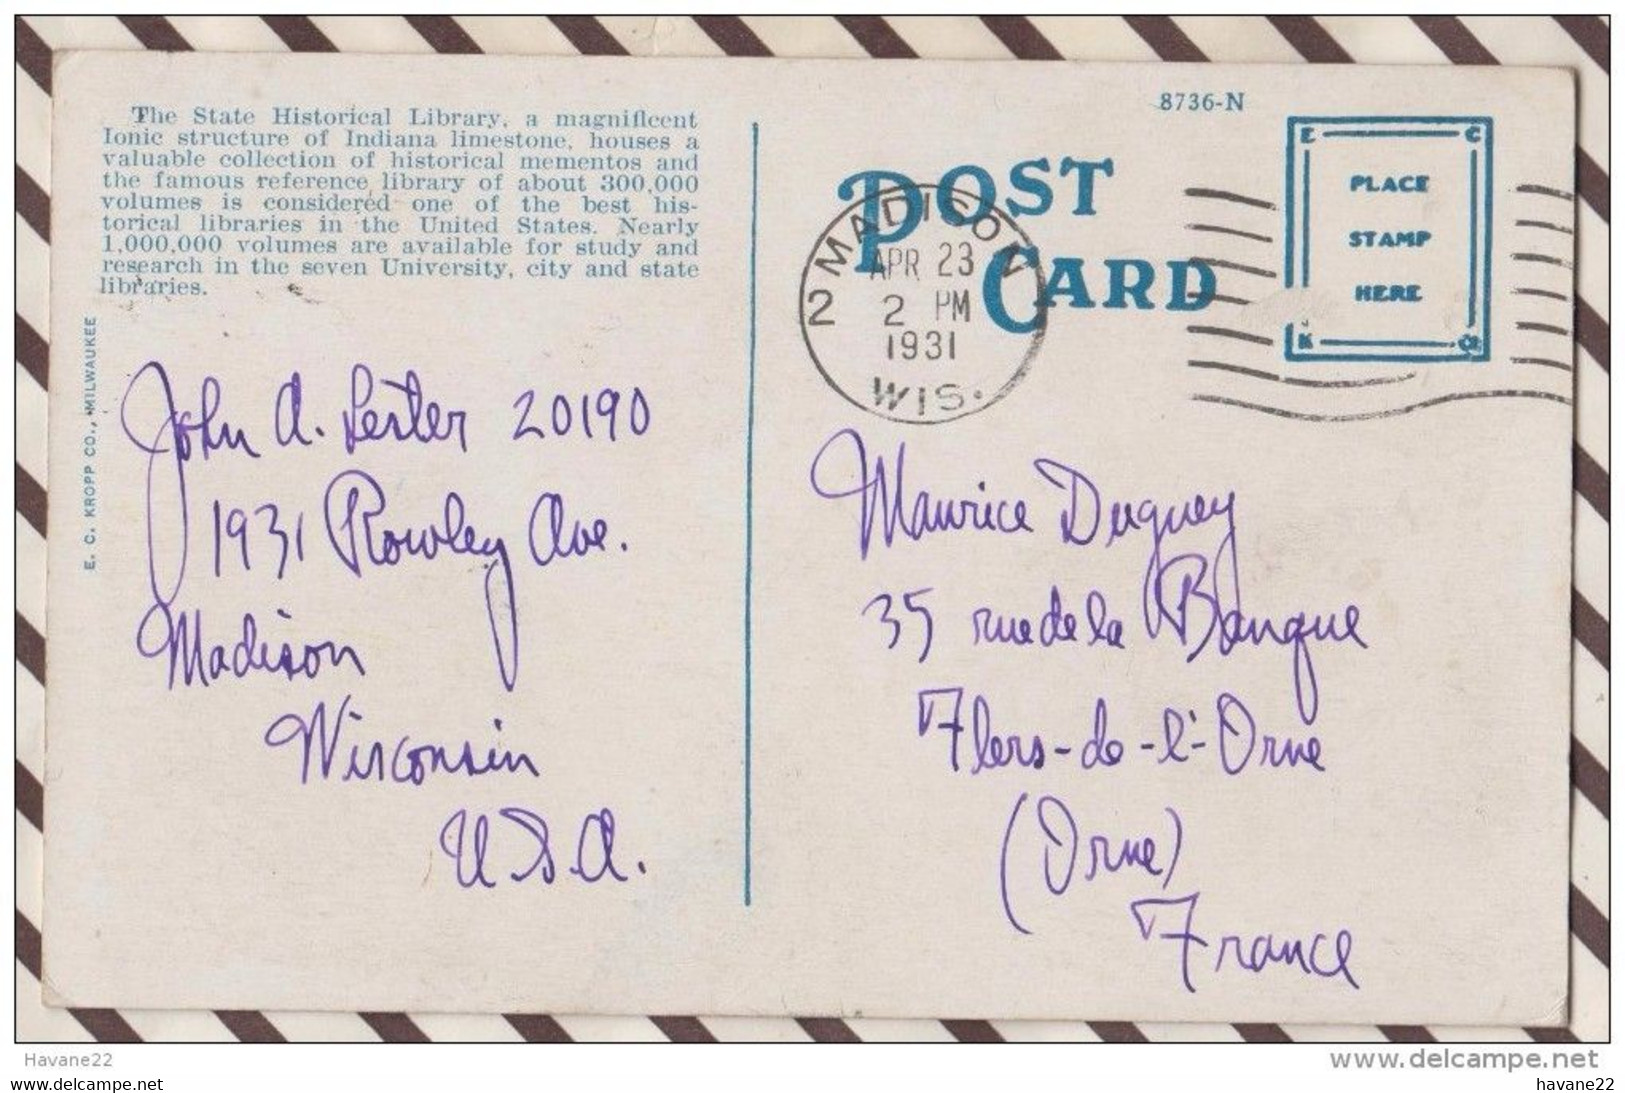 The State Historical Library, a magnificent
Ionic structure of Indiana limestone, houses a
valuable collection of historical mementos and
the famous reference library of about 300,000
volumes is considered one of the best his-
torical libraries in the United States. Nearly
1,000,000 volumes are available for study and
research in the seven University, city and state
libraries.
E. C. KROPP CO., MILWAUKEE
John A. Lester 20190
1931 Rowley Ave.
Madison
Wisconsin
U.S.A.
8736-N
POST
CARD
E C
PLACE
STAMP
HERE
K CO
2 MADISON
APR 23
2 PM
1931
WIS.
Maurice Duguey
35 rue de la Banque
Flers-de-l'-Orne
(Orne)
France
Havane22
www.delcampe.net
havane22
havane22